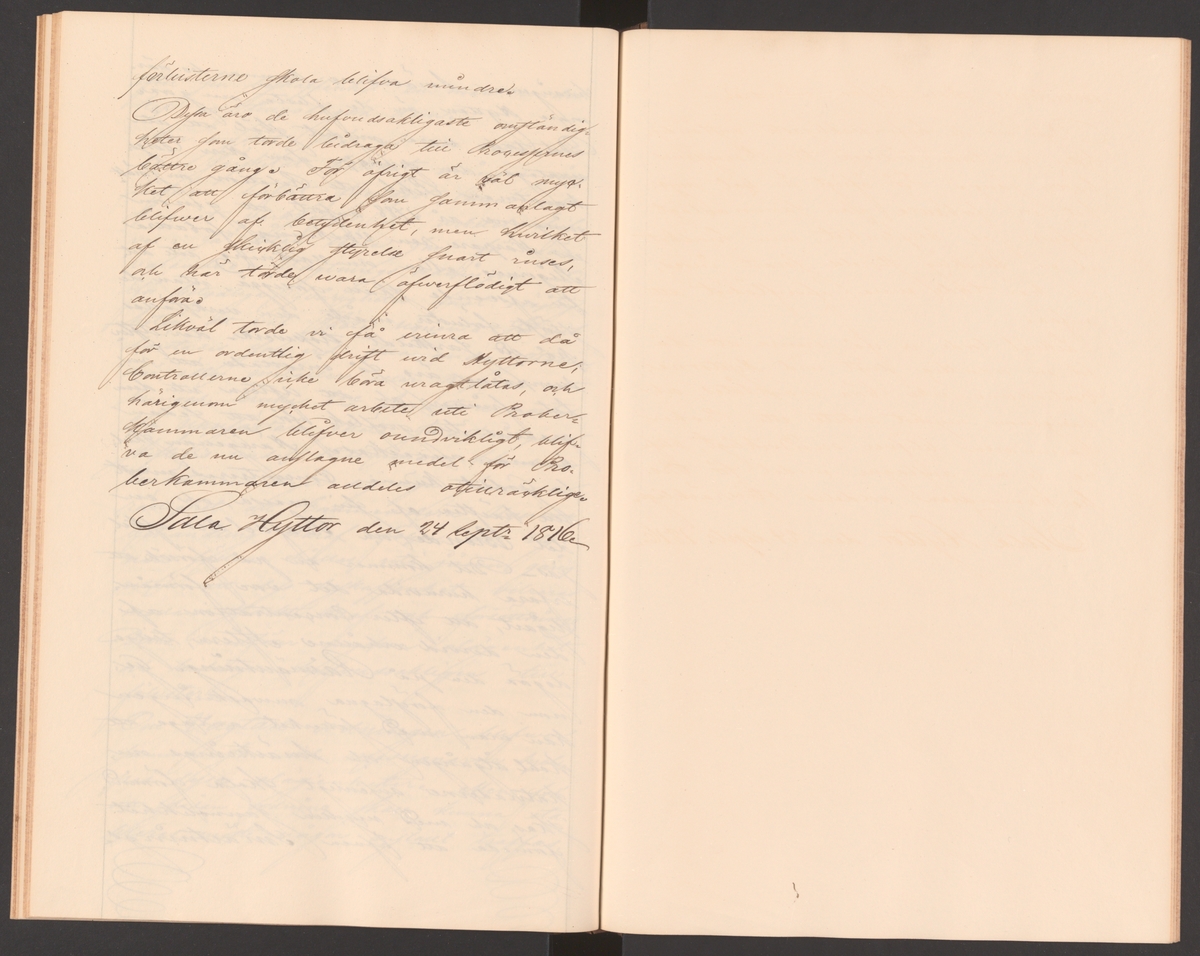 förlusterne skola blifva mindre.
Desse äro de hufvudsakligaste omständig-
heter som torde bidraga till Processernes
bättre gång. För öfrigt är väl myc-
ket att förbättra som sammanlagt
blifwer af betydenhet, men hvilket
af en skicklig styrelse snart rönes,
och här torde wara öfwerflödigt att
anföra.
Likväl torde vi få erinra att då
för en ordentlig drift wid Hyttorne,
Controllerne icke böra uragtlåtas, och
härigenom mycket arbete uti Prober-
kammaren blifver oundvikligt, blif-
va de nu anslagne medel för Pro-
berkammaren aldeles otillräcklige.
Sala Hyttor den 24 Septr 1816.